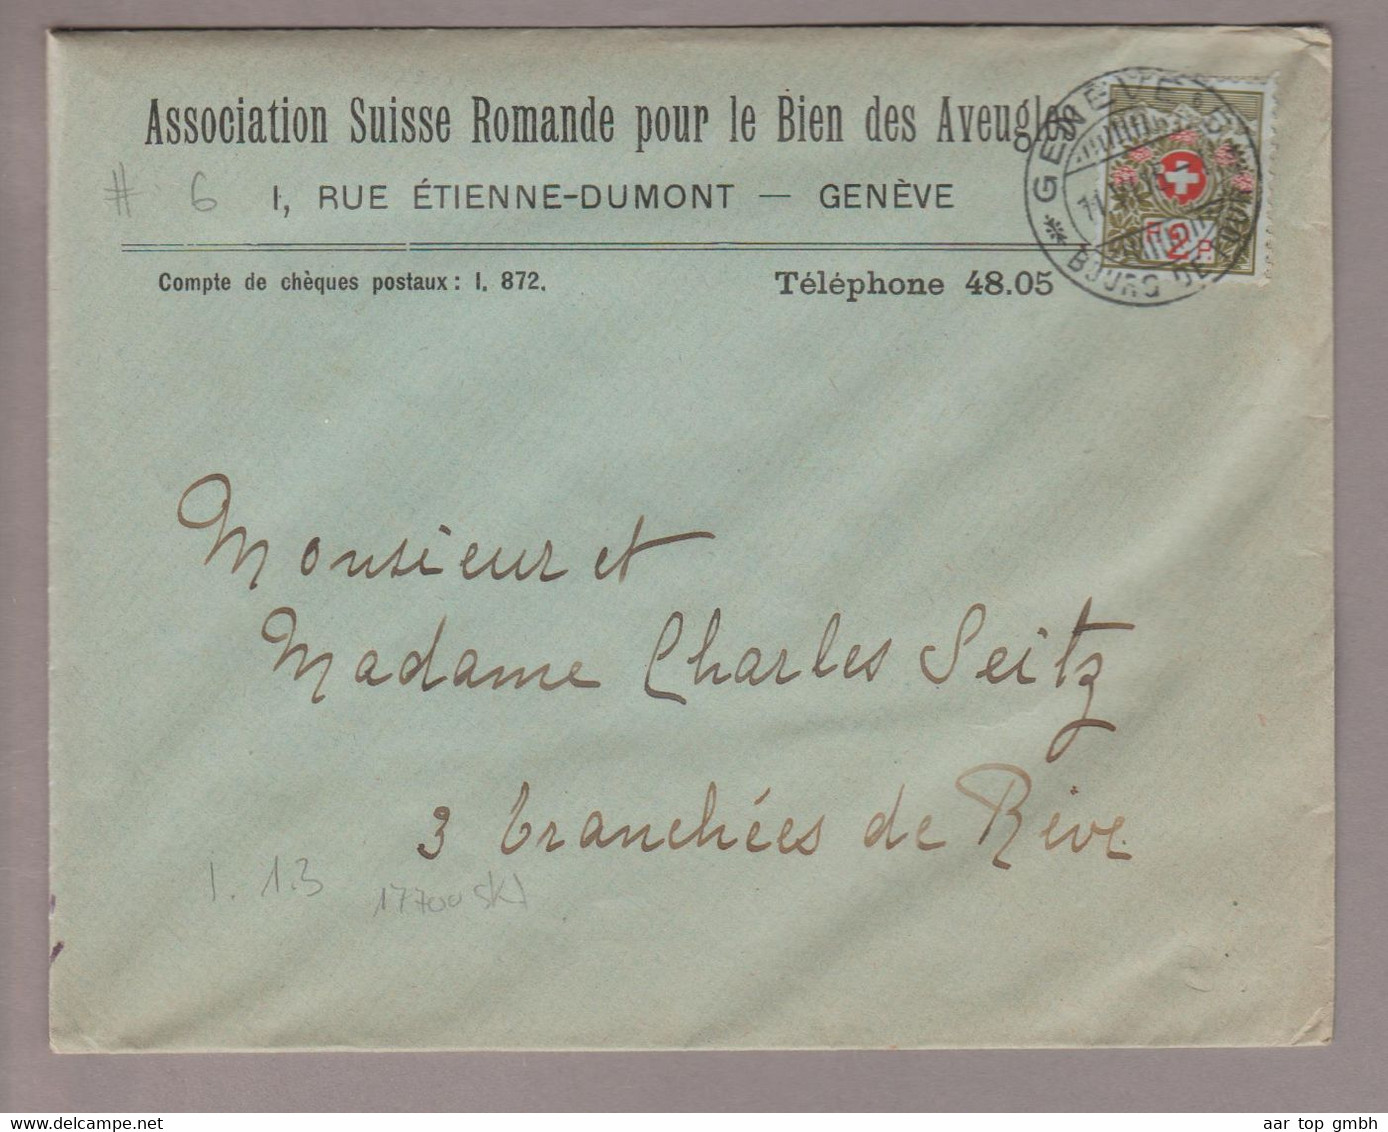 Association Suisse Romande pour le Bien des Aveugles
# 6 1, RUE ÉTIENNE-DUMONT — GENÈVE
Compte de chèques postaux: I. 872. Téléphone 48.05
GENÈVE
BOURG-DE-FOUR
2
Monsieur et
Madame Charles Seitz
3 tranchées de Rive.
1. 1.3
aar-wt-2022-0113
aar top gmbh